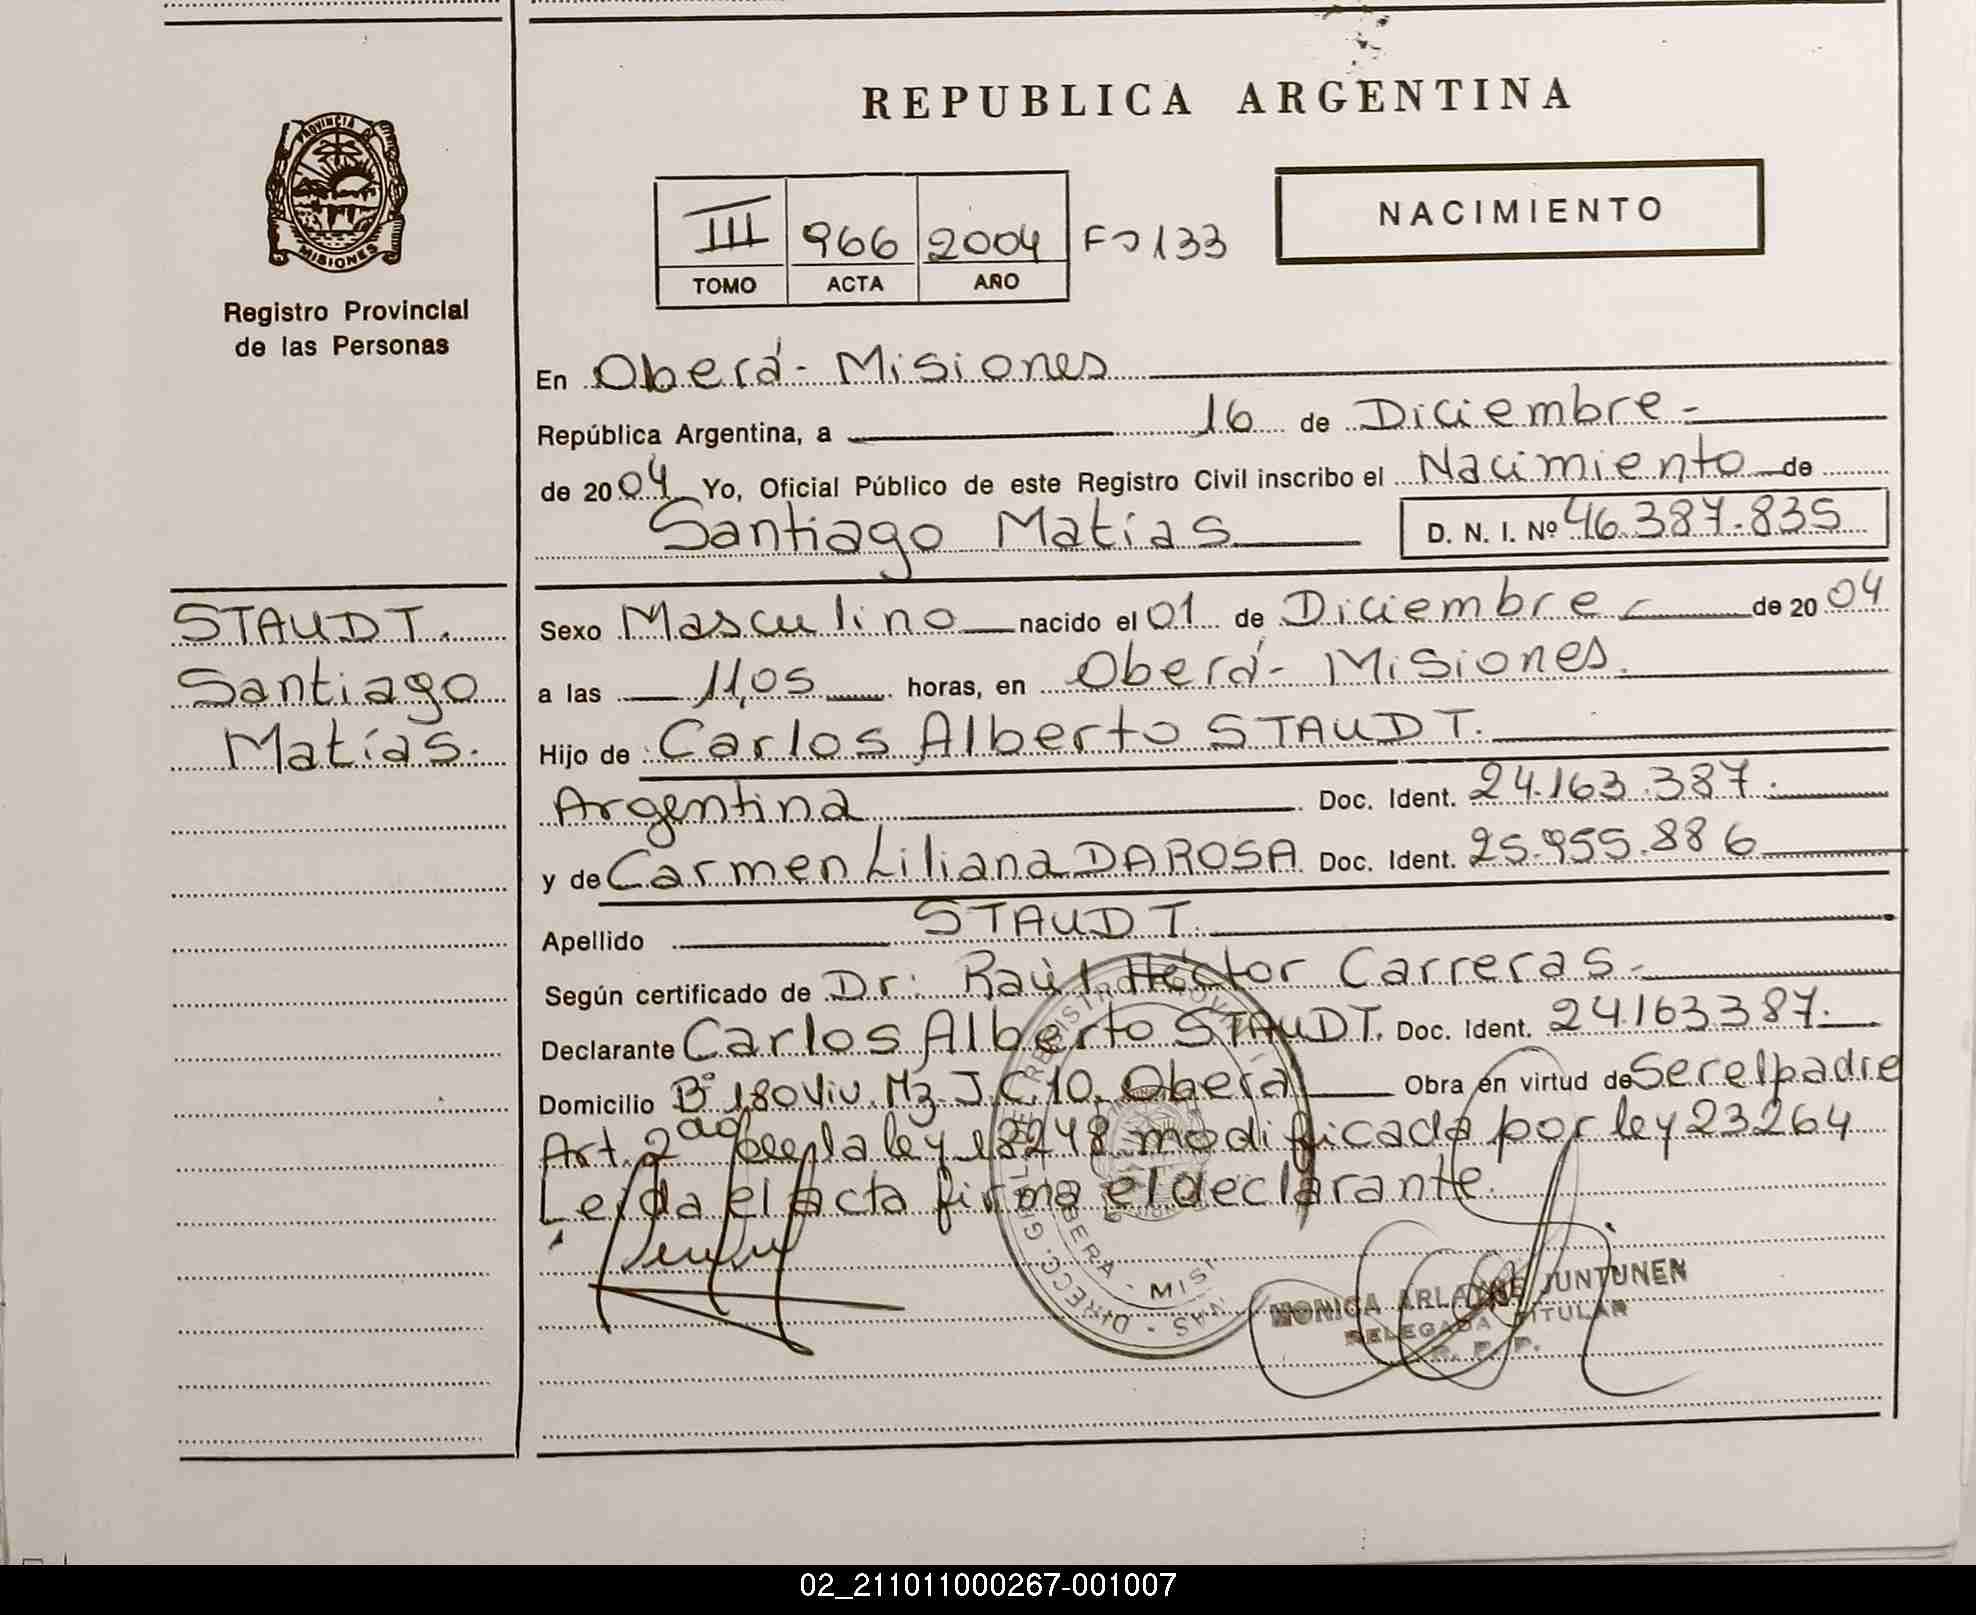 REPUBLICA ARGENTINA
PROVINCIA DE
MISIONES
Registro Provincial
de las Personas
III 966 2004 Fº 133
TOMO ACTA AÑO
NACIMIENTO
En Oberá - Misiones
República Argentina, a 16 de Diciembre -
de 2004 Yo, Oficial Público de este Registro Civil inscribo el Nacimiento de
Santiago Matías D. N. I. Nº 46.387.835
STAUDT.
Santiago
Matías.
Sexo Masculino nacido el 01 de Diciembre - de 2004
a las 11,05 horas, en Oberá - Misiones.
Hijo de Carlos Alberto STAUDT.
Argentina Doc. Ident. 24.163.387.
y de Carmen Liliana DAROSA Doc. Ident. 25.955.886
Apellido STAUDT.
Según certificado de Dr: Raúl Héctor Carreras -
Declarante Carlos Alberto STAUDT. Doc. Ident. 24.163387.
Domicilio Bº 180 Viv. Mz. J.C.10. Oberá Obra en virtud de Ser el padre
Art. 2do de la ley 18248 modificada por ley 23264
Leida el acta firma el declarante.
MONICA JUNTUNEN
DELEGADA TITULAR
R. P. P.
OBERA - MIS
02_211011000267-001007